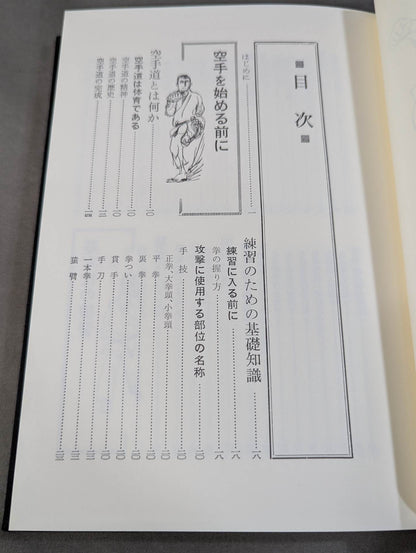 目次
はじめに……一
空手を始める前に
空手道とは何か……一〇
空手道は体育である……一〇
空手道の精神……一〇
空手道の歴史
空手道の完成……一四
練習のための基礎知識……一八
練習に入る前に……一八
拳の握り方……一八
攻撃に使用する部位の名称……二〇
手技……二〇
正拳、大拳頭、小拳頭……二〇
平拳……二〇
裏拳……二〇
拳つい……二〇
貫手
手刀
一本拳
猿臂